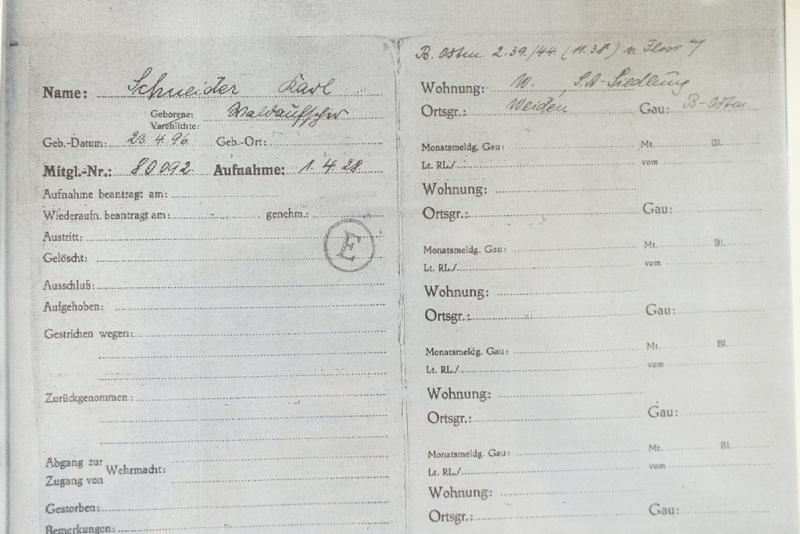 Name: Schneider Karl
Geborene:
Verehlichte:
Waldaufseher
Geb.-Datum: 23.4.96 Geb.-Ort:
Mitgl.-Nr.: 80092 Aufnahme: 1.4.28
Aufnahme beantragt am:
Wiederaufn. beantragt am: genehm.:
Austritt:
Gelöscht:
E
Ausschluß:
Aufgehoben:
Gestrichen wegen:
Zurückgenommen:
Abgang zur
Zugang von
Wehrmacht:
Gestorben:
Bemerkungen:
B. Ostm 2.39./44. (11.38)
Wohnung: W. S.A-Siedlung
Ortsgr.: Weiden Gau: B-Ostm
Monatsmeldg. Gau: Mt. Bl.
Lt. RL./ vom
Wohnung:
Ortsgr.: Gau:
Monatsmeldg. Gau: Mt. Bl.
Lt. RL./ vom
Wohnung:
Ortsgr.: Gau:
Monatsmeldg. Gau: Mt. Bl.
Lt. RL./ vom
Wohnung:
Ortsgr.: Gau:
Monatsmeldg. Gau: Mt. Bl.
Lt. RL./ vom
Wohnung:
Ortsgr.: Gau: